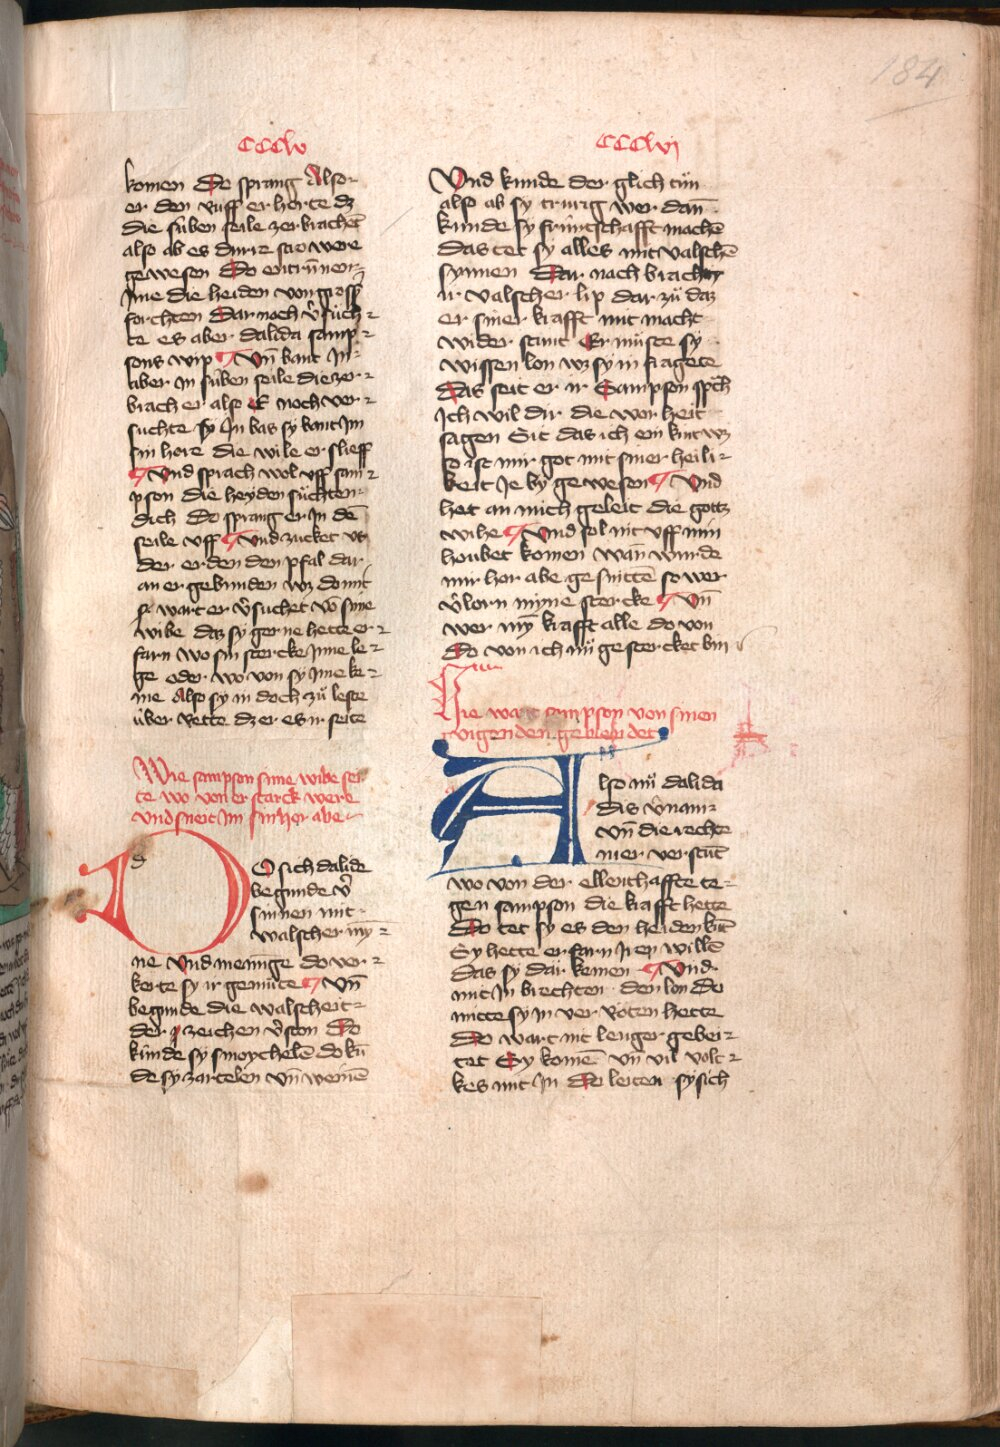 184
CCClv
komen Do sprang Also
er den ruff er horte dz
die süben seile zerbrachē
also ab es dürre stro were
gewesen Do entrūnen
Ime die heiden von grosß
forchten Dar noch v̄süch
te es aber dalida samp
sons wip Vn̄ bant In
aber In süben seile die zer
brach er also E noch ver
suchte sy In bas sy bant Im
sin hore die wile er slieff
Und sprach wol uff sam
pson die heyden süchten
dich Do sprang er In dē
seile uff Und zucket us
der erden den pfal dar
an er gebunden wz do mit
so wart er v̄suchet vō sine
wibe daz sy gerne hette er
farn wo sin stercke Inne le
ge oder wo von sy Ime ke
me Also sy in doch zü leste
über rette dz er es ir seite
Wie sampson sime wibe sei
te wo von er starck were
und sneit Im sin hor abe
d
DO sich dalide
begunde v̄
sinnen mit
valscher my
ne Und meninge do ver
kerte sy ir gemüte Vn̄
begunde die valscheit
der zeichen v̄ston Do
künde sy smeychelē do kū
de sy zartelen vn̄ weinē
CCClvj
Und kunde der glich tün
also ab sy trurig wer dan
kunde sy früntschafft machē
Das tet sy alles mit valschē
synnen Dar nach brach sy
ir valscher lip dar zü daz
er siner krafft mit macht
wider stunt Er müste sy
wissen lon wz sy in fragete
Das seit er ir Sampson spch
Ich wil dir die worheit
sagen Sit das ich ein kint wz
so ist mir got mit siner heili
keit Ie by gewesen Und
het an mich geleit die gottz
wihe Und sol nit uff min
houbet komen wan wurde
mir hor abe gesnittē so wer
v̄lorn myne stercke Vn̄
wer my krafft alle do von
Do von ich nü gestercket bin
Hie wart sampson von sinen
vigenden geblendet
Also nü dalida
dis v̄nam
vn̄ die rechte
mer verstūt
wo von der ellenthaffte te
gen sampson die krafft hette
Do tet sy es den heiden kūt
Sy hette erfarn Iren willē
das sy dar kemen Und
mit In brechten den lon do
mitte sy In verroten hette
Do wart nit lenger gebei
tet Sy komē vn̄ vil volc
kes mit In Do leiten sy sich